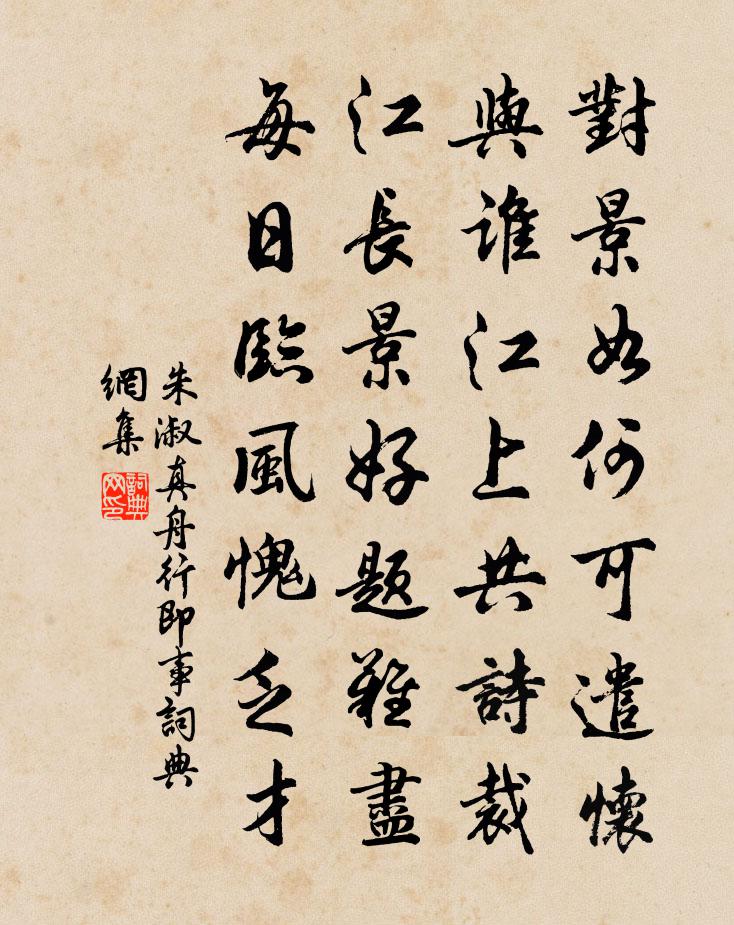 對景如何可遣懷
與誰江上共詩裁
江長景好題難盡
每日臨風愧乏才
朱淑真舟行即事詞典
網集
詞典
网印